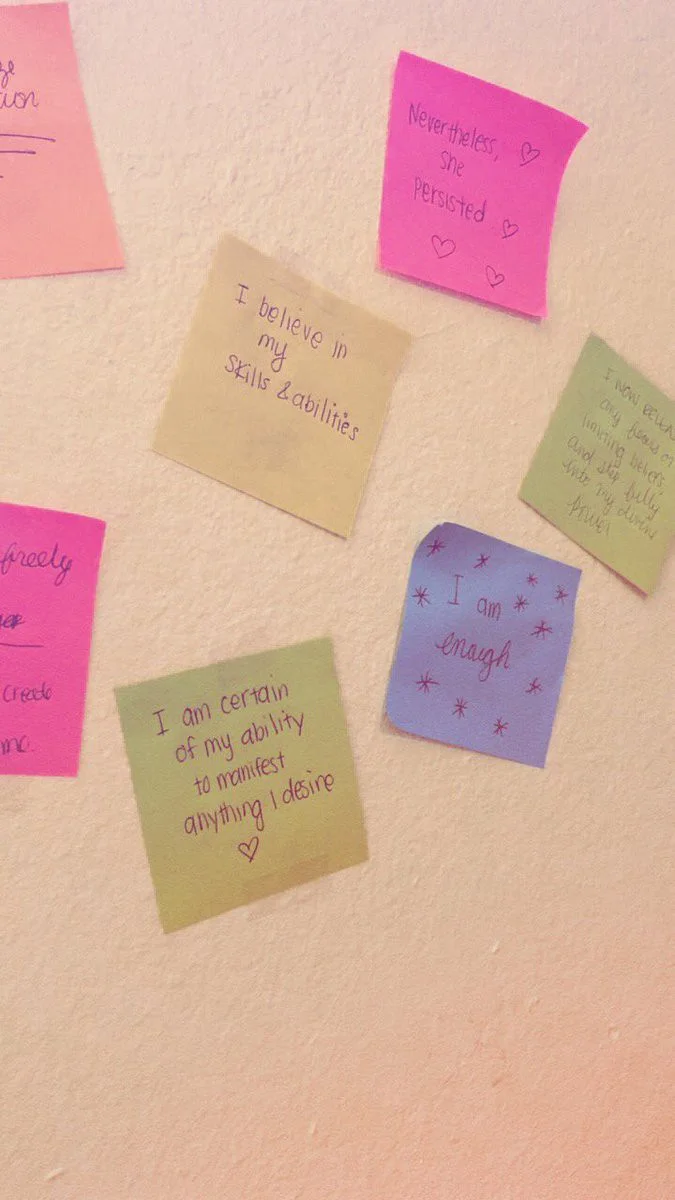 Nevertheless,
she
persisted
I believe in
my
skills & abilities
I now
any
limiting beliefs
and step fully
into my divine
power
freely
create
I am
enough
I am certain
of my ability
to manifest
anything I desire